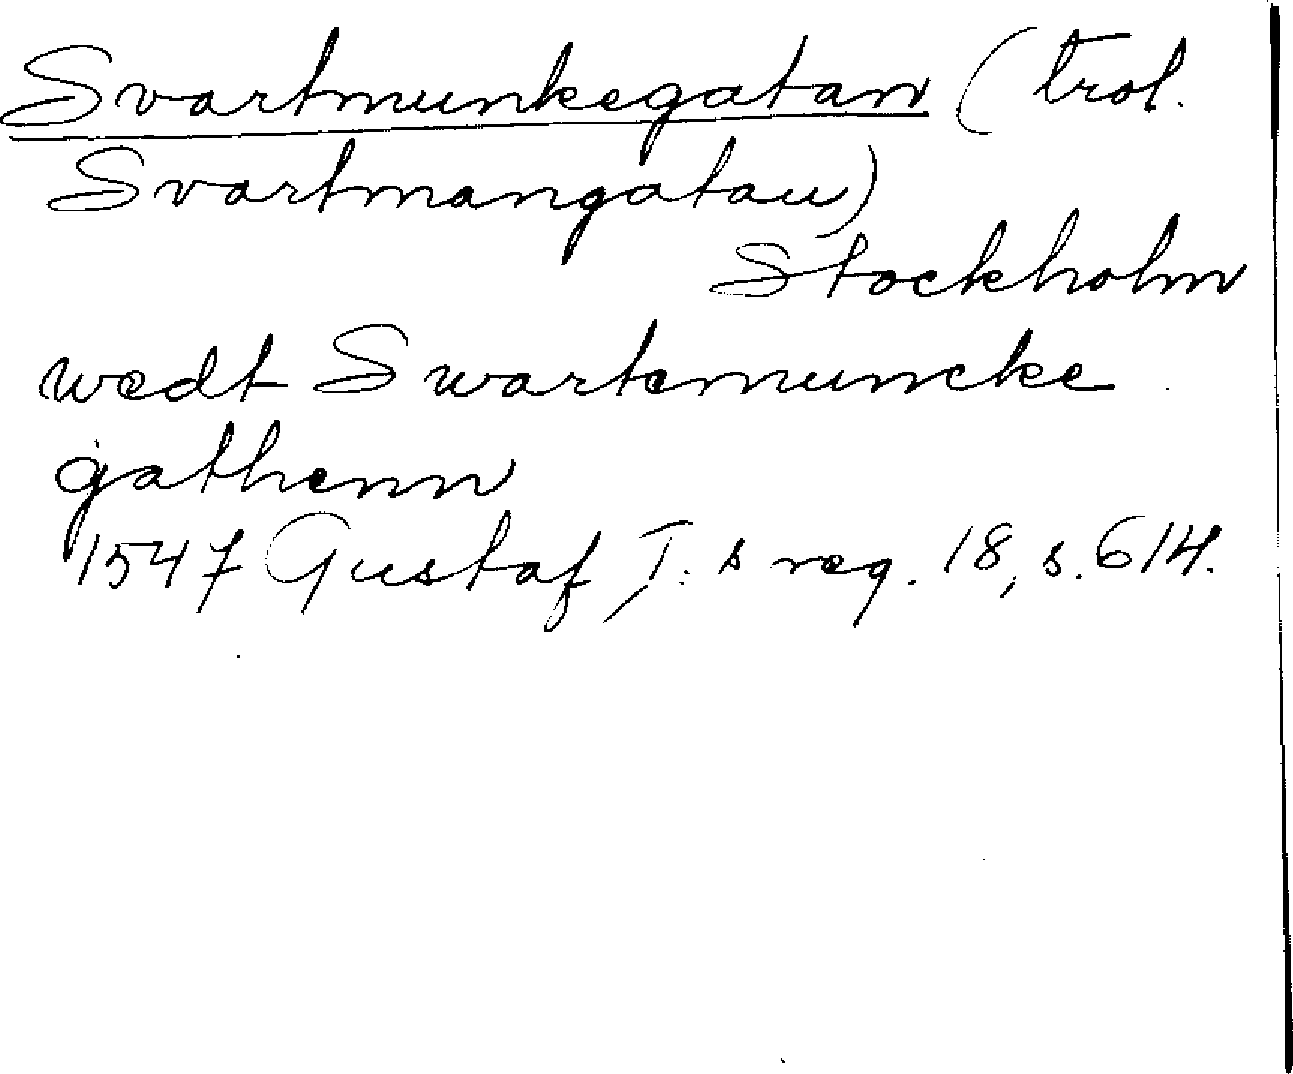 Svartmunkegatan (trol.
Svartmangatan)
Stockholm
wedt Swartemuncke
gathenn
1547 Gustaf I:s reg. 18, s. 614.